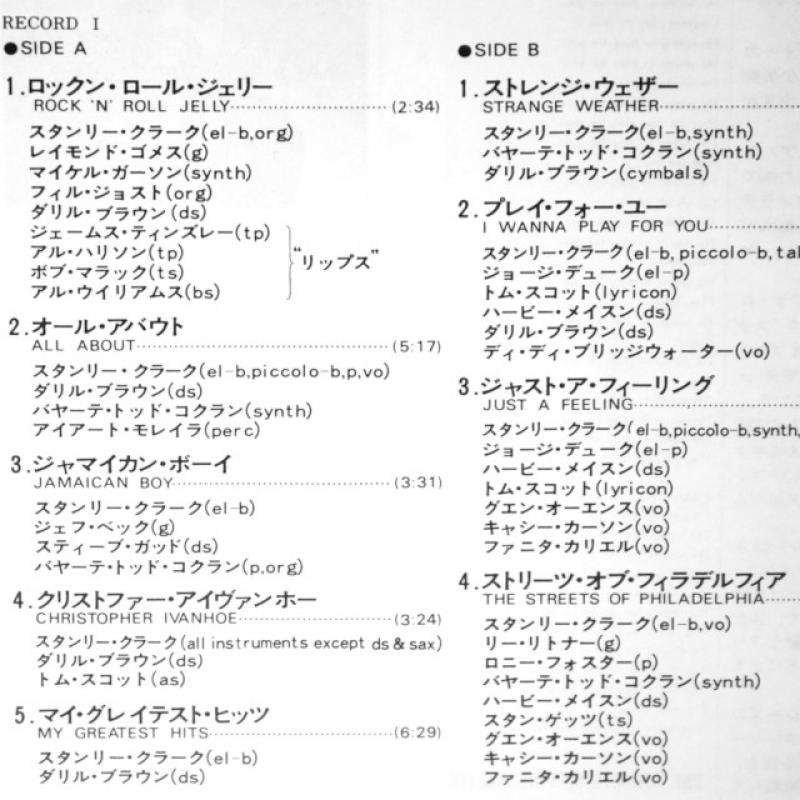 RECORD I
●SIDE A
1.ロックン・ロール・ジェリー
ROCK 'N' ROLL JELLY (2:34)
スタンリー・クラーク(el-b,org)
レイモンド・ゴメス(g)
マイケル・ガーソン(synth)
フィル・ジョスト(org)
ダリル・ブラウン(ds)
ジェームス・ティンズレー(tp)
アル・ハリソン(tp)
ボブ・マラック(ts)
アル・ウイリアムス(bs)
"リップス"
2.オール・アバウト
ALL ABOUT (5:17)
スタンリー・クラーク(el-b,piccolo-b,p,vo)
ダリル・ブラウン(ds)
バヤーテ・トッド・コクラン(synth)
アイアート・モレイラ(perc)
3.ジャマイカン・ボーイ
JAMAICAN BOY (3:31)
スタンリー・クラーク(el-b)
ジェフ・ベック(g)
スティーブ・ガッド(ds)
バヤーテ・トッド・コクラン(p,org)
4.クリストファー・アイヴァンホー
CHRISTOPHER IVANHOE (3:24)
スタンリー・クラーク(all instruments except ds & sax)
ダリル・ブラウン(ds)
トム・スコット(as)
5.マイ・グレイテスト・ヒッツ
MY GREATEST HITS (6:29)
スタンリー・クラーク(el-b)
ダリル・ブラウン(ds)
●SIDE B
1.ストレンジ・ウェザー
STRANGE WEATHER
スタンリー・クラーク(el-b,synth)
バヤーテ・トッド・コクラン(synth)
ダリル・ブラウン(cymbals)
2.プレイ・フォー・ユー
I WANNA PLAY FOR YOU
スタンリー・クラーク(el-b, piccolo-b,
ジョージ・デューク(el-p)
トム・スコット(lyricon)
ハービー・メイスン(ds)
ダリル・ブラウン(ds)
ディ・ディ・ブリッジウォーター(vo)
3.ジャスト・ア・フィーリング
JUST A FEELING
スタンリー・クラーク(el-b,piccolo-b,synth,
ジョージ・デューク(el-p)
ハービー・メイスン(ds)
トム・スコット(lyricon)
グエン・オーエンス(vo)
キャシー・カーソン(vo)
ファニタ・カリエル(vo)
4.ストリーツ・オブ・フィラデルフィア
THE STREETS OF PHILADELPHIA
スタンリー・クラーク(el-b,vo)
リー・リトナー(g)
ロニー・フォスター(p)
バヤーテ・トッド・コクラン(synth)
ハービー・メイスン(ds)
スタン・ゲッツ(ts)
グエン・オーエンス(vo)
キャシー・カーソン(vo)
ファニタ・カリエル(vo)